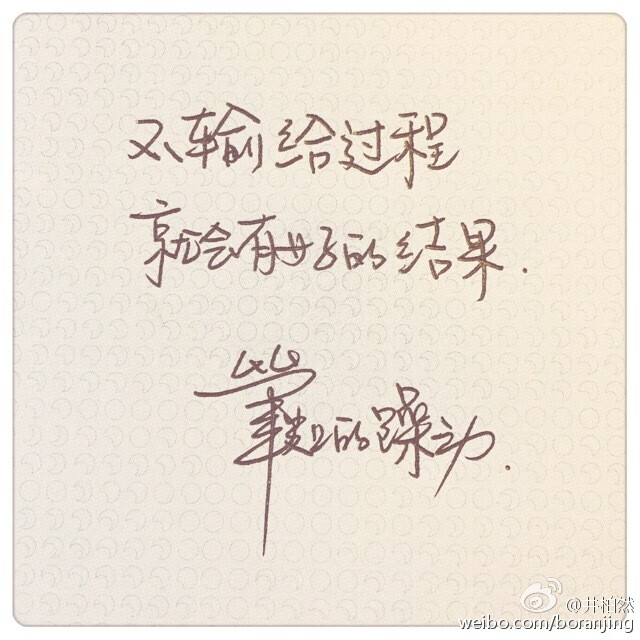 不输给过程
就会有好的结果.
筆尖上的躁动.
@井柏然
weibo.com/boranjing